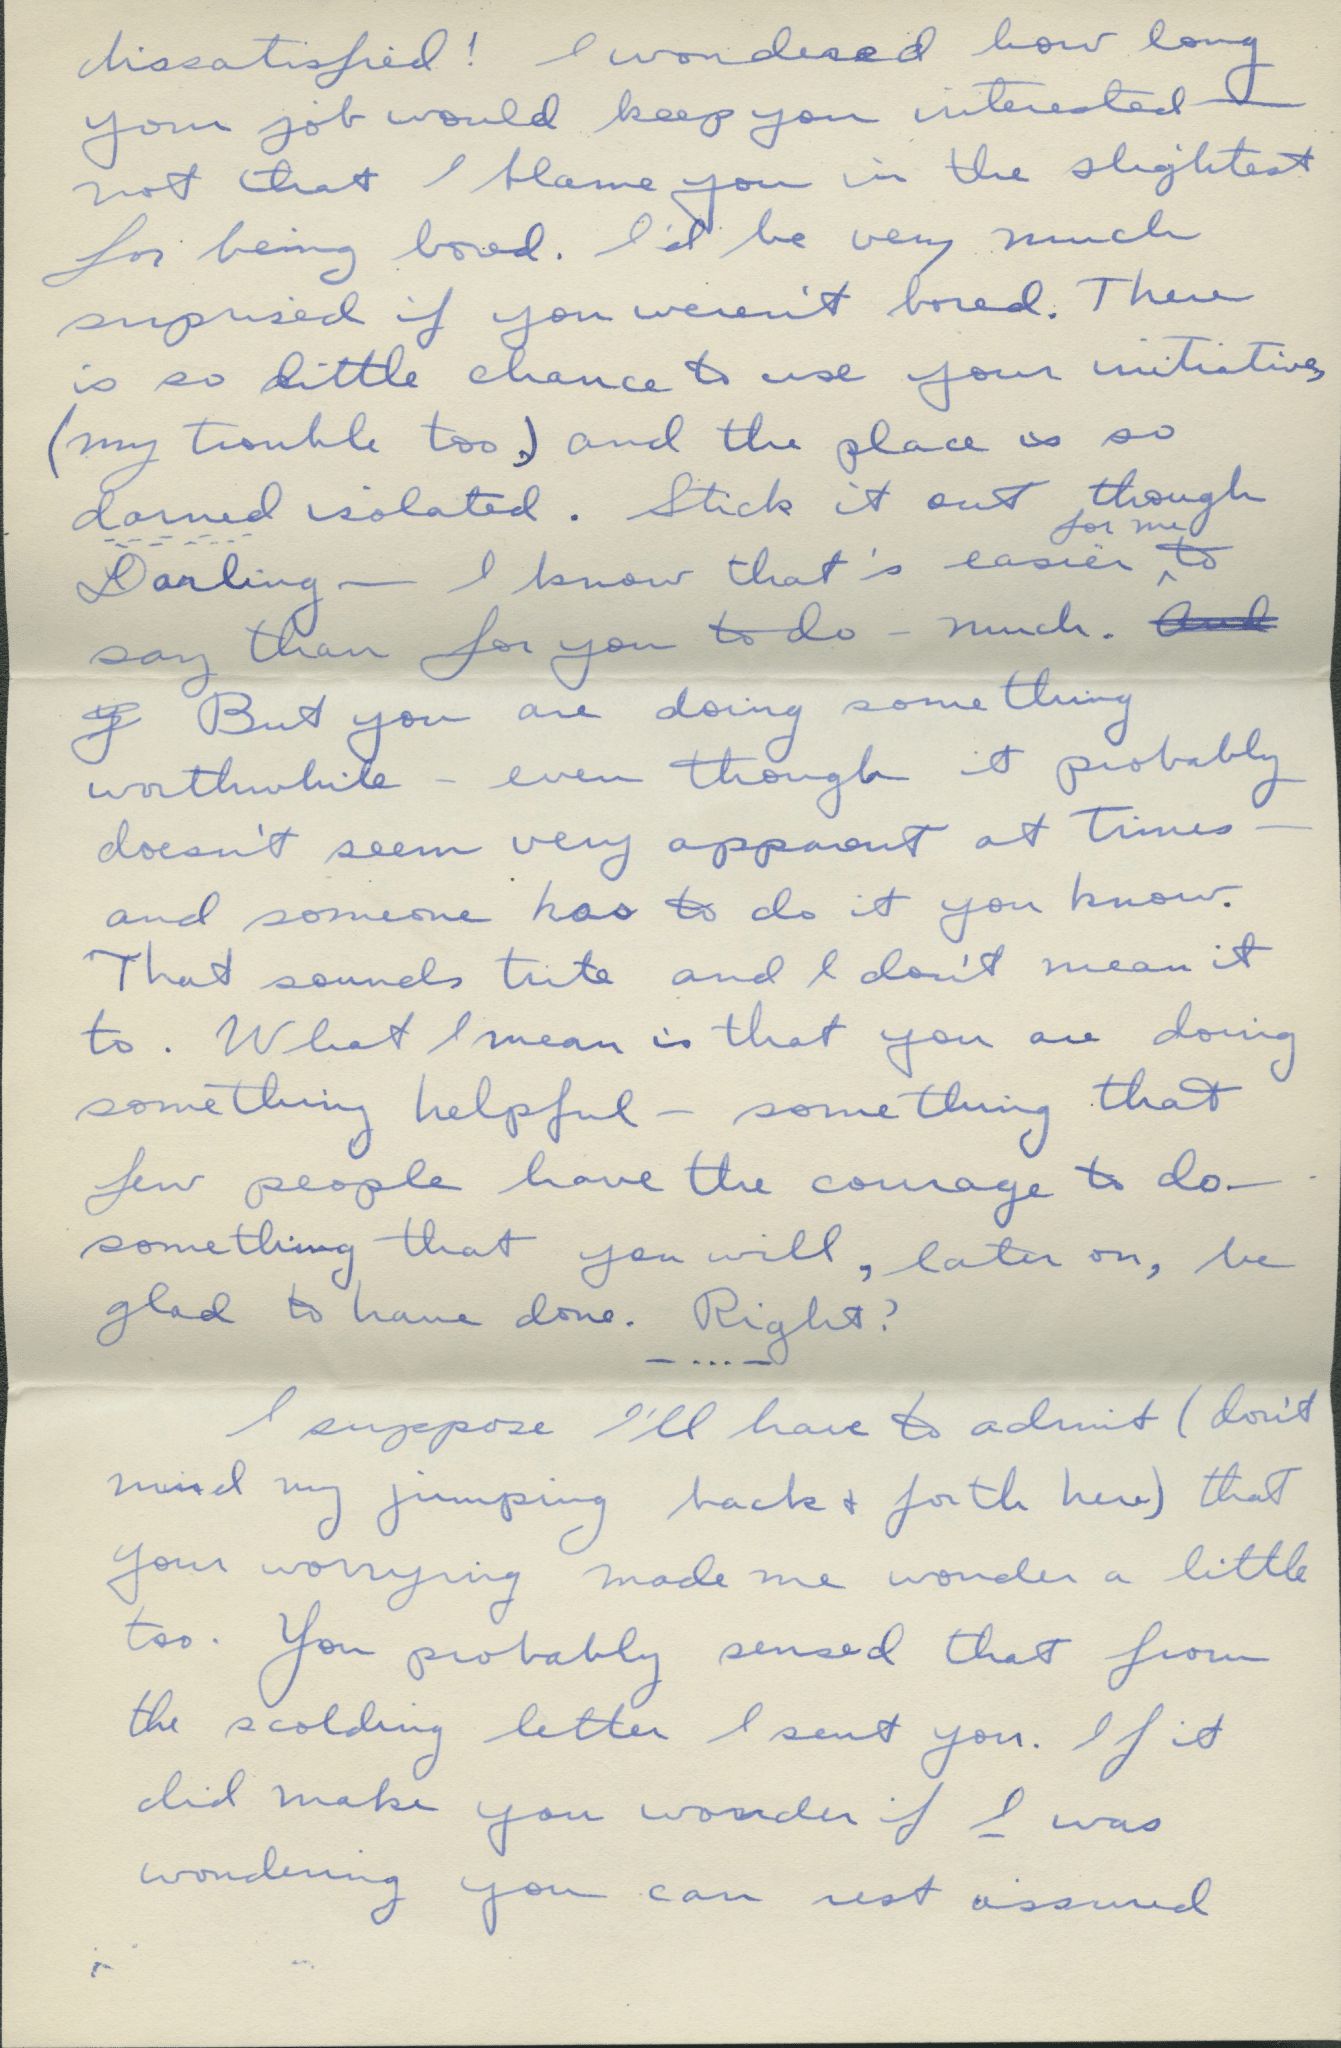 dissatisfied! I wondered how long
your job would keep you interested —
not that I blame you in the slightest
for being bored. I'd be very much
surprised if you weren't bored. There
is so little chance to use your initiative,
(my trouble too,) and the place is so
darned isolated. Stick it out though
for me
Darling — I know that's easier ^ to
say than for you to do - much. And
But you are doing something
worthwhile - even though it probably
doesn't seem very apparent at times —
and someone has to do it you know.
That sounds trite and I don't mean it
to. What I mean is that you are doing
something helpful - something that
few people have the courage to do -
something that you will, later on, be
glad to have done. Right?
- ... -
I suppose I'll have to admit (don't
mind my jumping back & forth here) that
your worrying made me wonder a little
too. You probably sensed that from
the scolding letter I sent you. If it
did make you wonder if I was
wondering you can rest assured